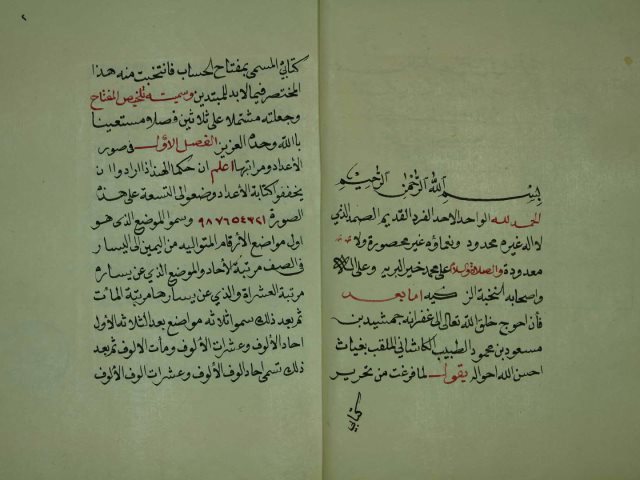 بسم الله الرحمن الرحيم
الحمد لله الواحد الاحد الفرد القديم الصمد الذي
لا اله غيره محدود ونعماؤه غير محصورة ولا
معدودة والصلاة والسلام على محمد خير البريه وعلى آله
واصحابه النخبة اما بعد
فان احوج خلق الله تعالى الى غفرانه جمشيد بن
مسعود بن محمود الطبيب الكاشاني الملقب بغياث
احسن الله احواله يقول لما فرغت من تحرير
كتابي
٢
كتابي المسمى بمفتاح الحساب فانتخبت منه هذا
المختصر فيما لابد للمبتدين وسميته تلخيص المفتاح
وجعلته مشتملا على ثلاثين فصلا مستعينا
بالله وحده العزيز الفصل الاول في صور
الأعداد ومراتبها اعلم ان حكما الهند اذا ارادوا ان
يخففوا كتابة الأعداد وضعوا لى التسعة على هذه
الصورة ٩٨٧٦٥٤٣٢١ وسموا الموضع الذي هو
اول مواضع الأرقام المتواليه من اليمين الى اليسار
في الصف مرتبة لأحاد والموضع الذي عن يساره
مرتبة العشراة والذي عن يسارها مرتبة المائت
ثم بعد ذلك سموا ثلاثه مواضع بعد الثلاثه الأول
احاد الألوف وعشرات الألوف ومأت الالوف ثم بعد
ذلك تسمى احاد الوف الألوف وعشرات الوف الألوف